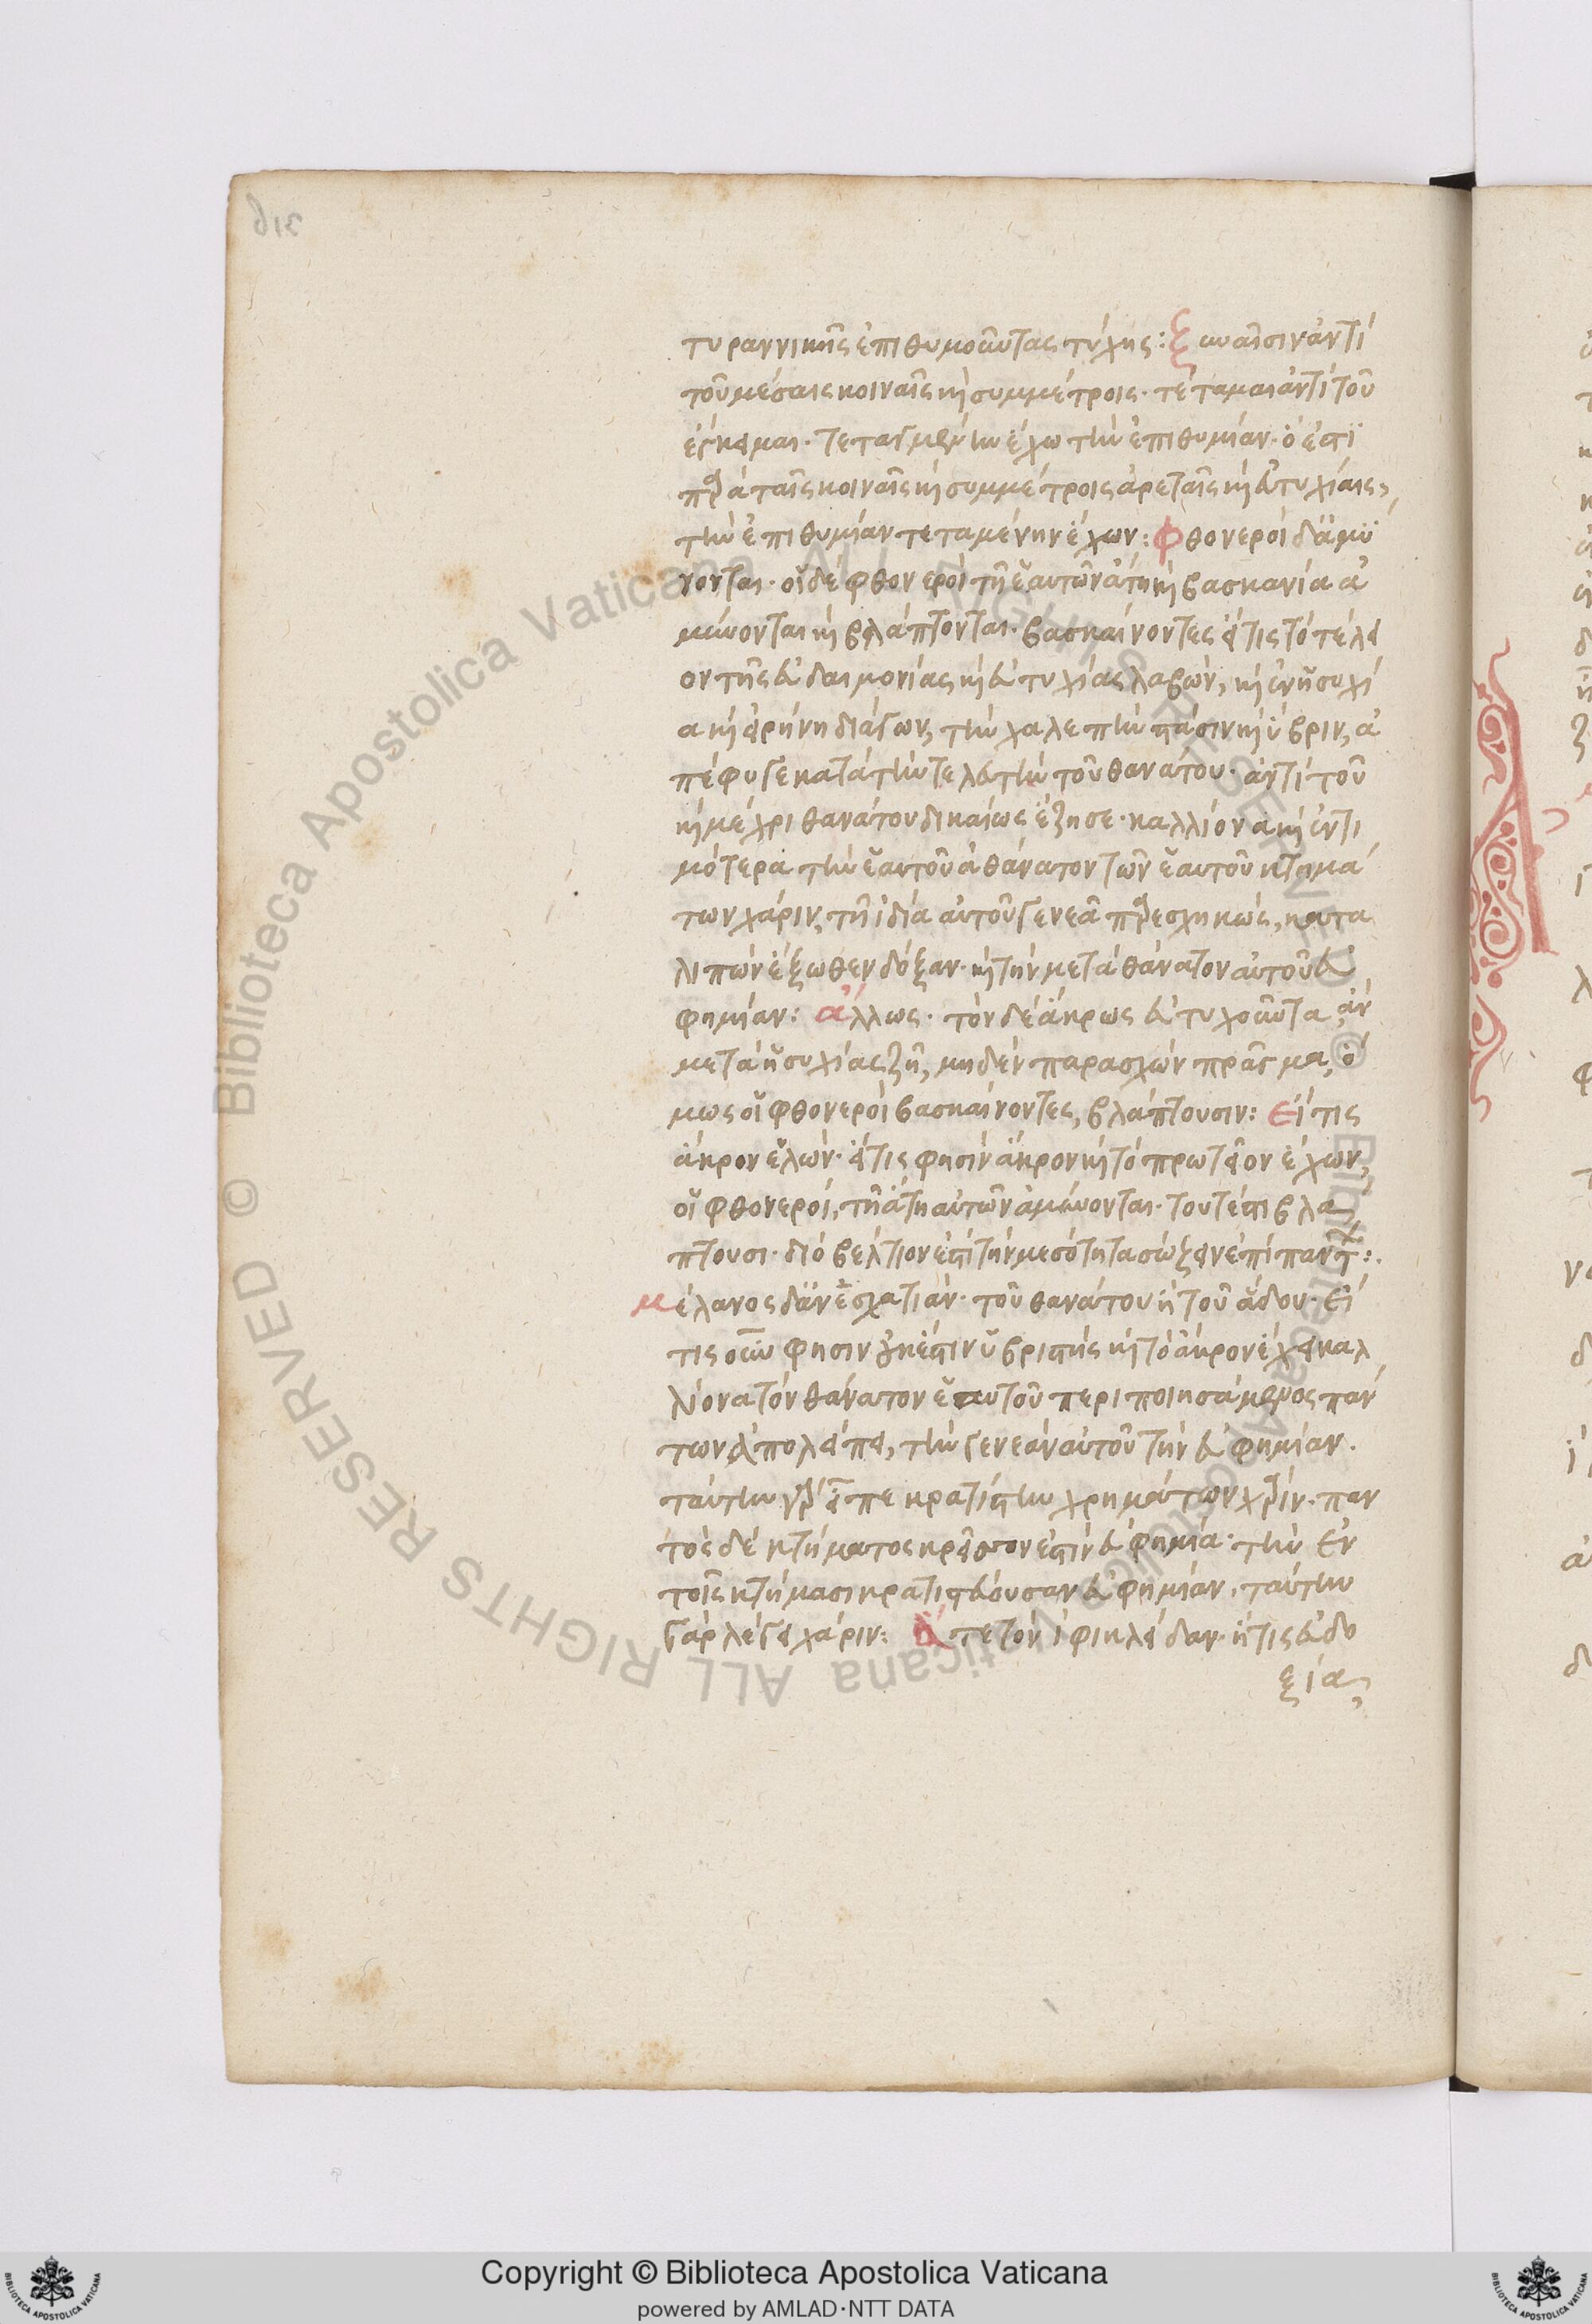 τυραννικῆς ἐπιθυμοῦντας τύχης: ξυναῖσιν ἀντὶ
τοῦ μέσαις κοιναῖς κὶ συμμέτροις· τέταμαι ἀντὶ τοῦ
ἔγκειμαι· τεταγμένην ἔχω τὴν ἐπιθυμίαν· ὅ ἐστὶ
παρὰ ταῖς κοιναῖς κὶ συμμέτροις ἀρεταῖς κὶ εὐτυχίαις,
τὴν ἐπιθυμίαν τεταμένην ἔχων: φθονεροὶ δ' ἀμύ
νονται· οἱ δὲ φθονεροὶ τῇ ἑαυτῶν ἄτη κὶ βασκανία ἀ
μύνονται κὶ βλάπτονται· βασκαίνοντες εἴ τις τὸ τέλει
ον τῆς εὐδαιμονίας κὶ εὐτυχίας λαβών, κὶ ἐν ἡσυχί
α κὶ εἰρήνη διάγων, τὴν χαλεπὴν στάσιν κὶ ὕβριν, ἀ
πέφυγε κατὰ τὴν τελευτὴν τοῦ θανάτου· ἀντὶ τοῦ
κὶ μέχρι θανάτου δικαίως ἔζησε· καλλίονα κὶ ἐντι
μότερα τὴν ἑαυτοῦ ἀθάνατον τῶν ἑαυτοῦ κτημά
των χάριν, τῇ ἰδία αὐτοῦ γενεᾶ παρεσχηκώς, κατα
λιπὼν ἔξωθεν δόξαν· κὶ τὴν μετὰ θάνατον αὐτοῦ εὐ
φημίαν: ἄλλως· τὸν δὲ ἄκρως εὐτυχοῦντα ἂν
μετὰ ἡσυχίας ζῆ, μηδὲν παρασχὼν πρᾶγμα, ὅ
μως οἱ φθονεροὶ βασκαίνοντες, βλάπτουσιν: εἴ τις
ἄκρον ἑλών· εἴ τις φησὶν ἄκρον κὶ τὸ πρωτεῖον ἔχων,
οἱ φθονεροί, τῇ ἄτη αὐτῶν ἀμύνονται· τουτέστι βλά
πτουσι· διὸ βέλτιον ἐστὶ τὴν μεσότητα σώζειν ἐπὶ παντ:.
μέλανος δ' ἂν ἐσχατιάν· τοῦ θανάτου ἢ τοῦ ἅδου· εἴ
τις οὖν φησιν οὐκ ἔστιν ὑβριστὴς κὶ τὸ ἄκρον ἔχει καλ
λίονα τὸν θάνατον ἑαυτοῦ περιποιησάμενος πάν
των ἀπολείπει, τὴν γενεὰν αὐτοῦ τὴν εὐφημίαν.
ταύτην γὰρ εἶπε κρατίστην χρημάτων χάριν· παν
τὸς δὲ κτήματος κρεῖσσον ἐστὶν εὐφημία· τὴν ἐν
τοῖς κτήμασι κρατιστεύουσαν εὐφημίαν, ταύτην
γὰρ λέγει χάριν: ἅτε τὸν ἰφικλείδαν· ἥτις εὐδο
ξίας